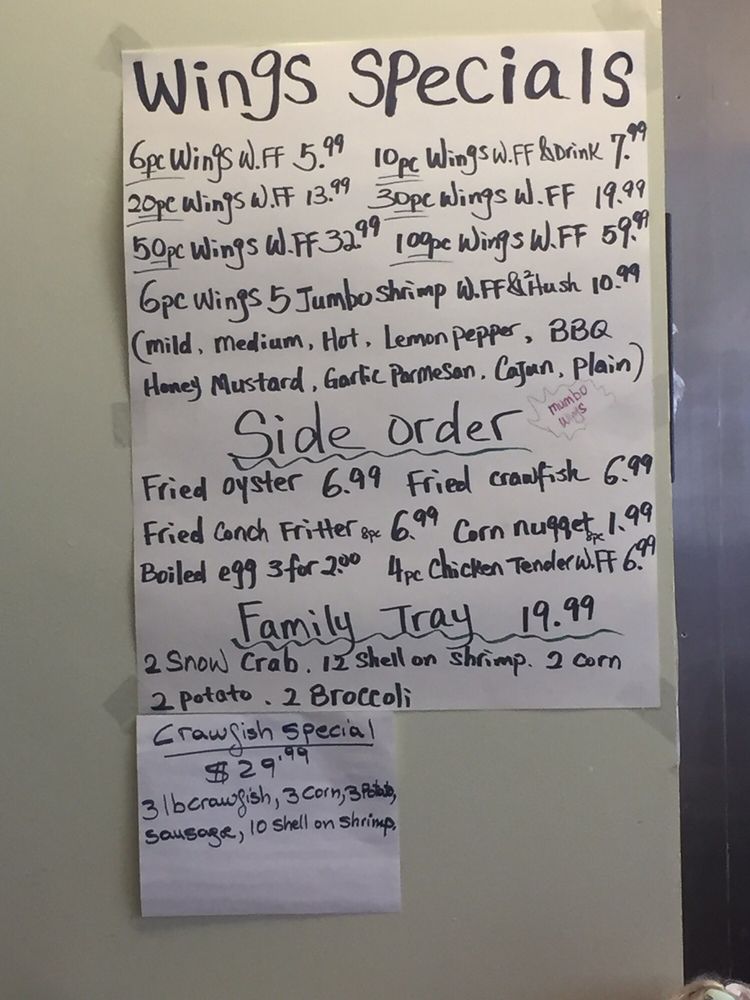 Wings Specials
6pc Wings W.FF 5.99 10pc Wings W.FF & Drink 7.99
20pc Wings W.FF 13.99 30pc Wings W.FF 19.99
50pc Wings W.FF 32.99 100pc Wings W.FF 59.99
6pc Wings 5 Jumbo Shrimp W.FF & 2 Hush 10.99
(mild, medium, Hot, Lemon pepper, BBQ
Honey Mustard, Garlic Parmesan, Cajun, plain)
mumbo
wings
Side order
Fried oyster 6.99 Fried crawfish 6.99
Fried Conch Fritter 8pc 6.99 Corn nugget 8pc 1.99
Boiled egg 3 for 2.00 4pc Chicken Tender W.FF 6.99
Family Tray 19.99
2 Snow Crab. 12 Shell on shrimp. 2 corn
2 potato. 2 Broccoli
Crawfish Special
$29.99
3 lb crawfish, 3 corn, 3 Potato,
sausage, 10 shell on shrimp.